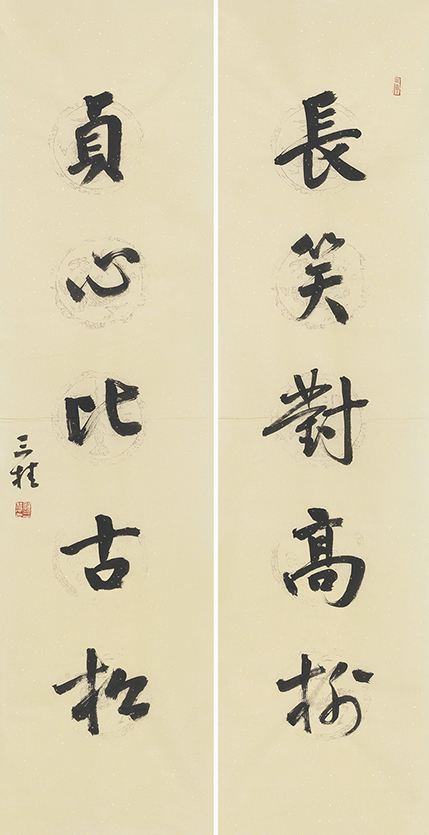 長笑對高柳
貞心比古松
三桂